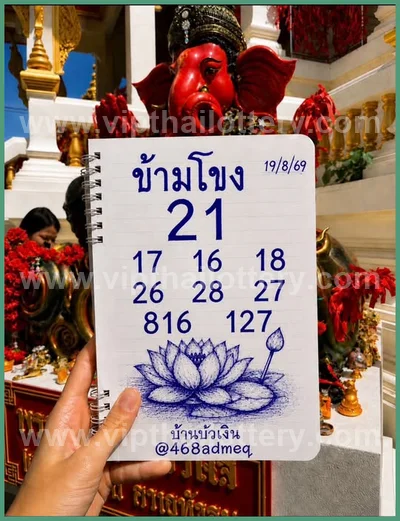 www.vipthailottery.com
ข้ามโขง
19/8/69
21
17 16 18
www.vipthailottery.com
26 28 27
816 127
บ้านบัวเงิน
@468admeq
www.vipthailottery.com